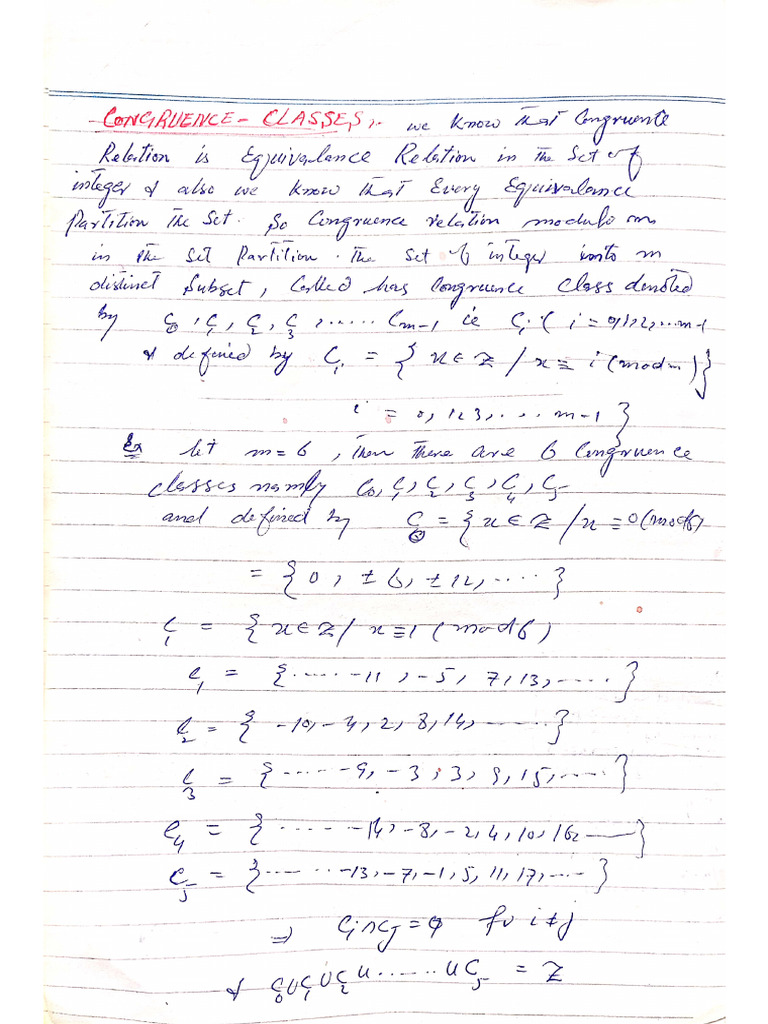 CONGRUENCE - CLASSES :- we know that Congruence
Relation is Equivalance Relation in the Set of
integer & also we know that Every Equivalance
Partition the Set. So Congruence relation modulo m
in the set Partition. the set of integer into m
distinct Subset, Called has Congruence Class denoted
by C₀, C₁, C₂, C₃, ...... Cm-1 ie Ci ( i = 0,1,2,...m-1
& defined by Ci = { x ∈ Z / x ≡ i (mod m) }
i = 0, 1 2 3, . . . m-1 }
Ex let m = 6, then there are 6 Congruence
classes namly C₀, C₁, C₂, C₃, C₄, C₅
and defined by C₀ = { x ∈ Z / x ≡ 0 (mod 6)
= { 0, ±6, ±12, ..... }
C₁ = { x ∈ Z / x ≡ 1 (mod 6)
C₁ = { ..... -11, -5, 7, 13, ..... }
C₂ = { -10, -4, 2, 8, 14, ....... }
C₃ = { ..... -9, -3, 3, 9, 15, ..... }
C₄ = { ...... -14, -8, -2, 4, 10, 16 —— }
C₅ = { ...... -13, -7, -1, 5, 11, 17, .... }
⇒ Ci ∩ Cj = φ for i ≠ j
& C₀ ∪ C₁ ∪ C₂ ∪ ...... ∪ C₅ = Z